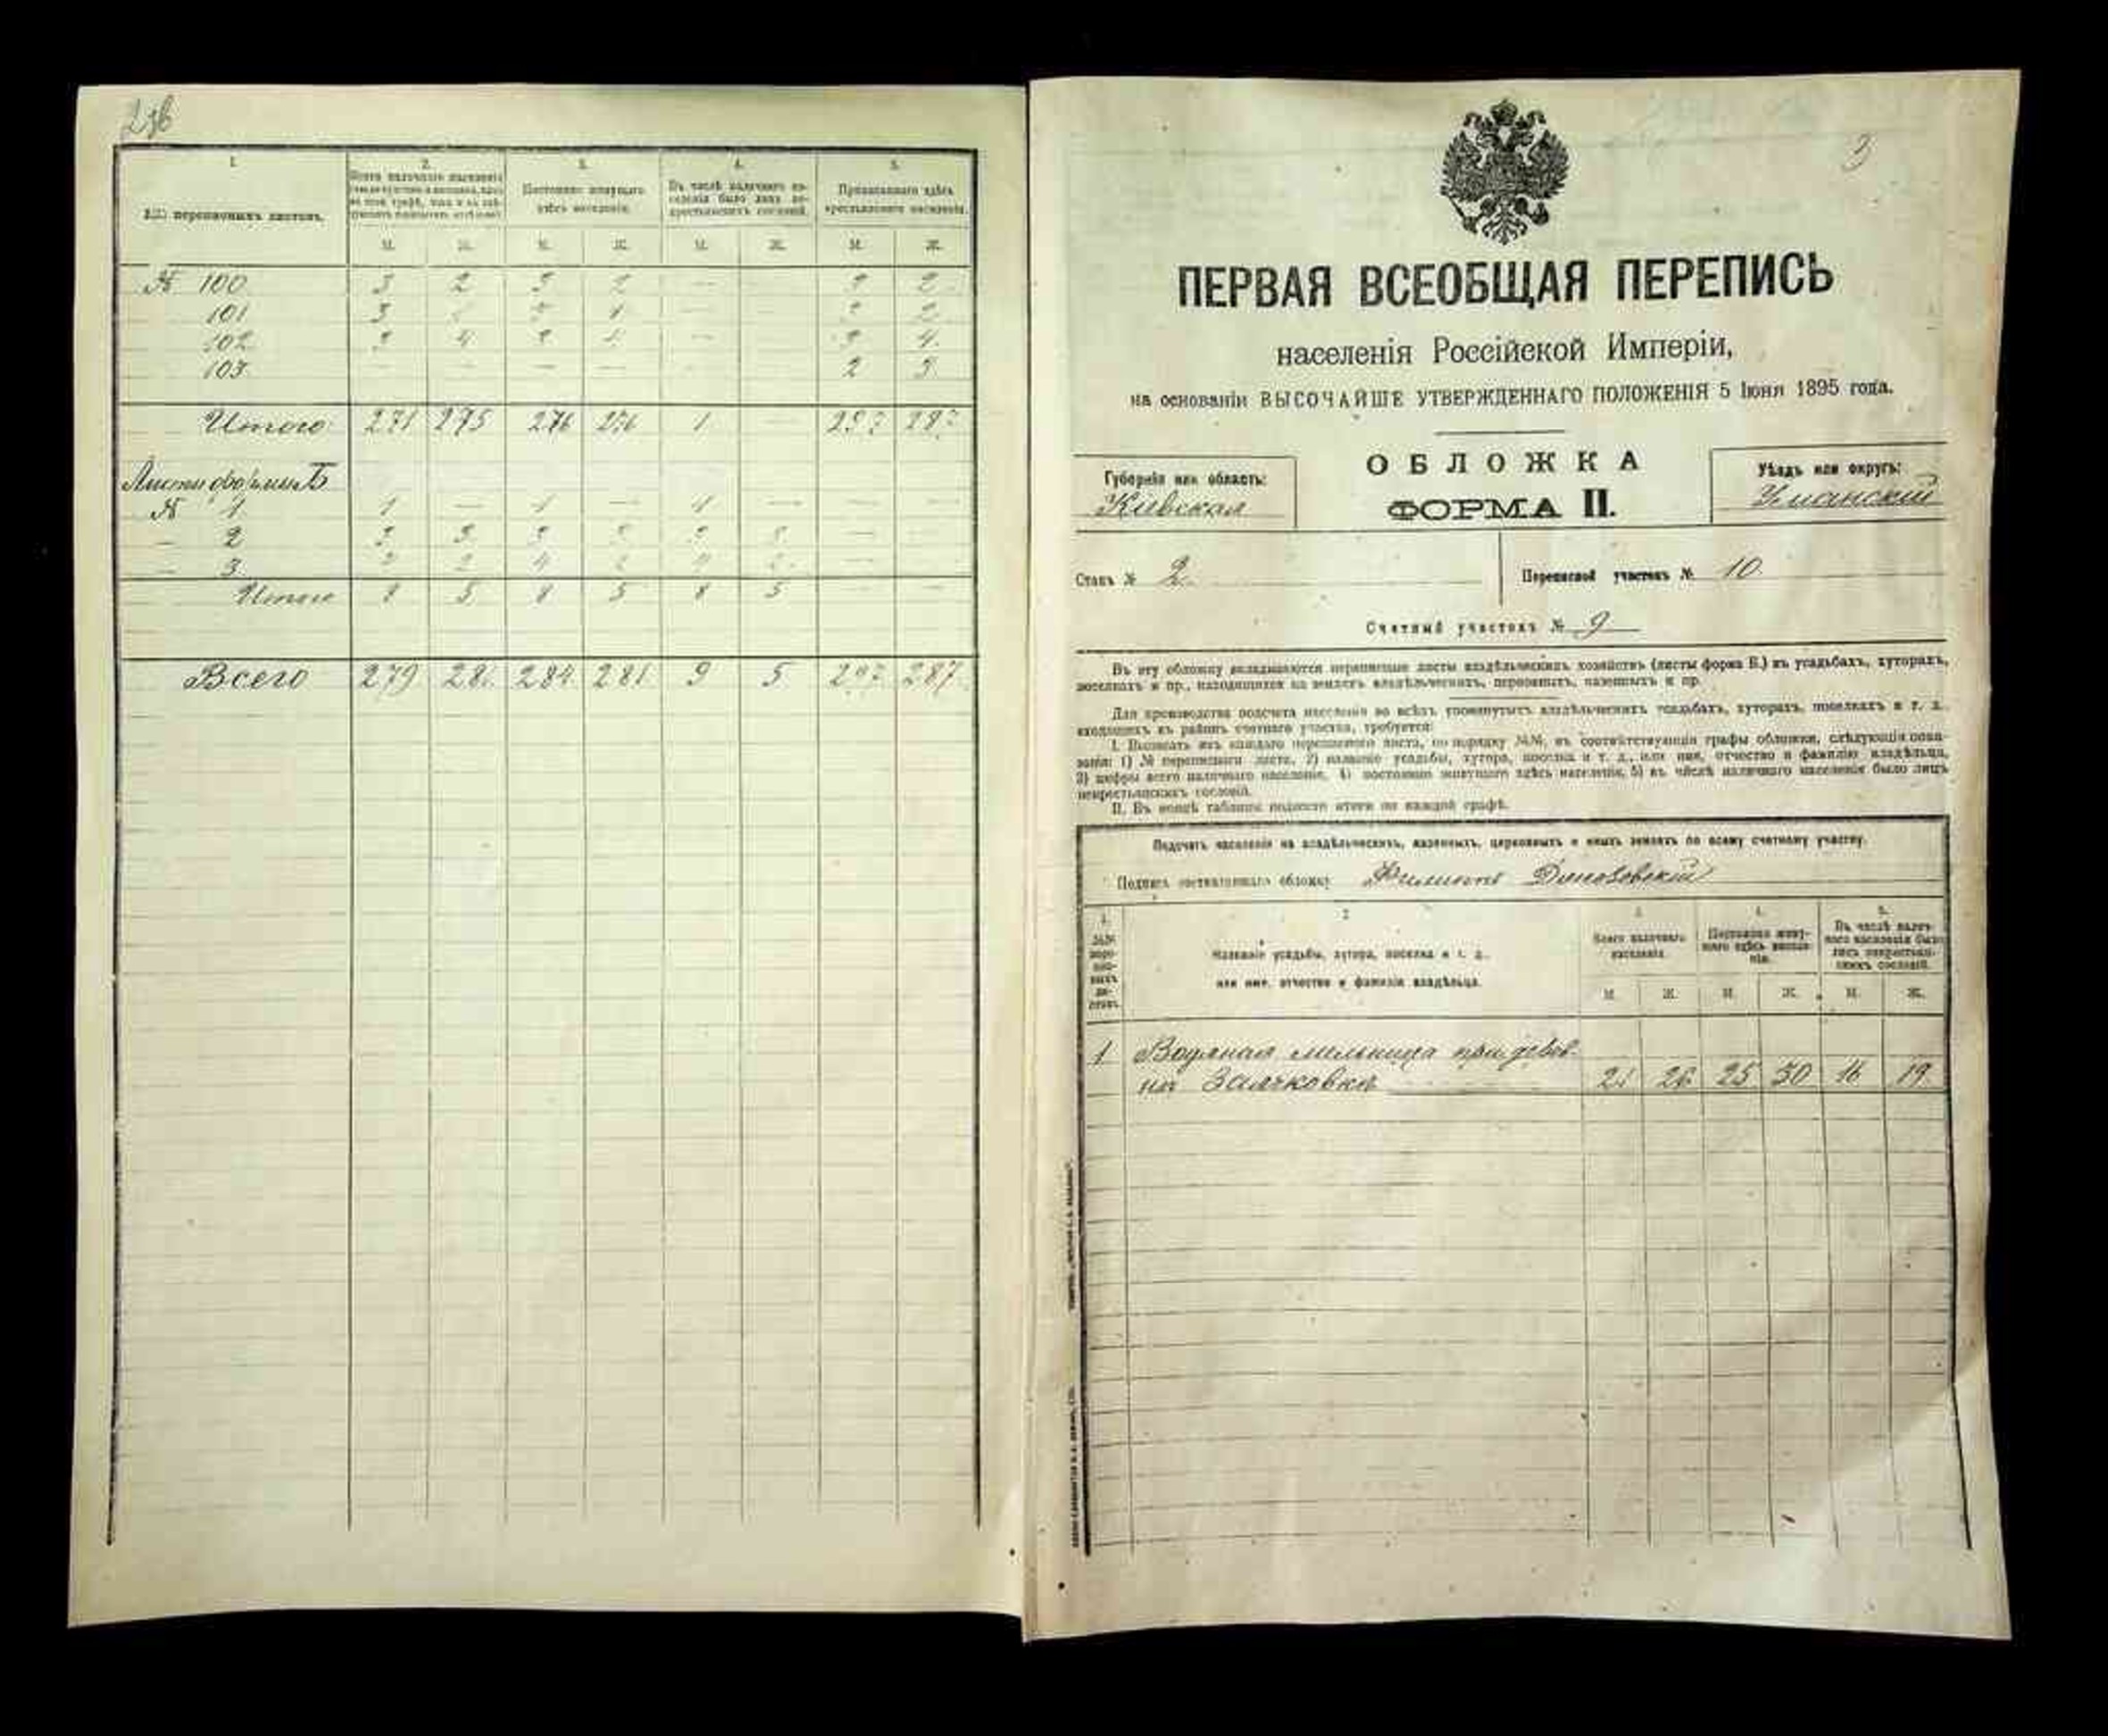 1. 2. 3. 4. 5.
№№ переписныхъ листовъ.
Всего наличнаго населенія
Постоянно живущаго здѣсь населенія.
Въ числѣ наличнаго населенія было лицъ некрестьянскихъ сословій.
Приписаннаго здѣсь крестьянскаго населенія.
М. Ж. М. Ж. М. Ж. М. Ж.
№ 100 3 2 3 2 — 2
101 3 1 — 2
102 3 4 4 — 4
103 — — — — 2 3
Итого 271 275 276 276 1 —
Листы формы Б
№ 1 1 — 1 — 1 —
— 2 — —
— 3 2 4 — —
Итого 8 5 8 5 8 5 — —
Всего 279 284 281 9 5 287
3
ПЕРВАЯ ВСЕОБЩАЯ ПЕРЕПИСЬ
населенія Россійской Имперіи,
на основаніи ВЫСОЧАЙШЕ УТВЕРЖДЕННАГО ПОЛОЖЕНІЯ 5 Іюня 1895 года.
ОБЛОЖКА
ФОРМА II.
Губернія или область:
Кіевская
Уѣздъ или округъ:
Уманскій
Станъ № 2.
Переписной участокъ № 10
Счетный участокъ № 9
Въ эту обложку вкладываются переписные листы владѣльческихъ хозяйствъ (листы форма Б.) въ усадьбахъ, хуторахъ,
поселкахъ и пр., находящихся на земляхъ владѣльческихъ, церковныхъ, казенныхъ и пр.
Для производства подсчета населенія во всѣхъ упомянутыхъ владѣльческихъ усадьбахъ, хуторахъ, поселкахъ и т. д.,
входящихъ въ районъ счетнаго участка, требуется:
I. Выписать изъ каждаго переписного листа, по порядку №№, въ соотвѣтствующія графы обложки, слѣдующія пока-
занія: 1) № переписного листа, 2) названіе усадьбы, хутора, поселка и т. д., или имя, отчество и фамилію владѣльца,
3) цифры всего наличнаго населенія, 4) постоянно живущаго здѣсь населенія, 5) въ числѣ наличнаго населенія было лицъ
некрестьянскихъ сословій.
II. Въ концѣ таблицы подвести итоги по каждой графѣ.
Подсчетъ населенія на владѣльческихъ, казенныхъ, церковныхъ и иныхъ земляхъ по всему счетному участку.
Подпись составлявшаго обложку Филиппъ
1. 2 3. 4. 5.
№№ переписныхъ листовъ.
Названіе усадьбы, хутора, поселка и т. д.,
или имя, отчество и фамилія владѣльца.
Всего наличнаго населенія.
Постоянно живущаго здѣсь населенія.
Въ числѣ наличнаго населенія было лицъ некрестьянскихъ сословій.
М. Ж. М. Ж. М. Ж.
1 Водяная мельница при дерев-
нѣ Заячковкѣ 26 25 30 16 19